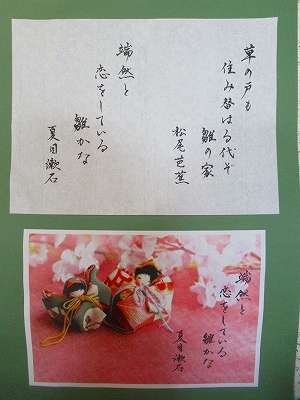 草の戸も
住み替はる代ぞ
雛の家
松尾芭蕉
端然と
恋をしている
雛かな
夏目漱石
端然と
恋をしている
雛かな
夏目漱石